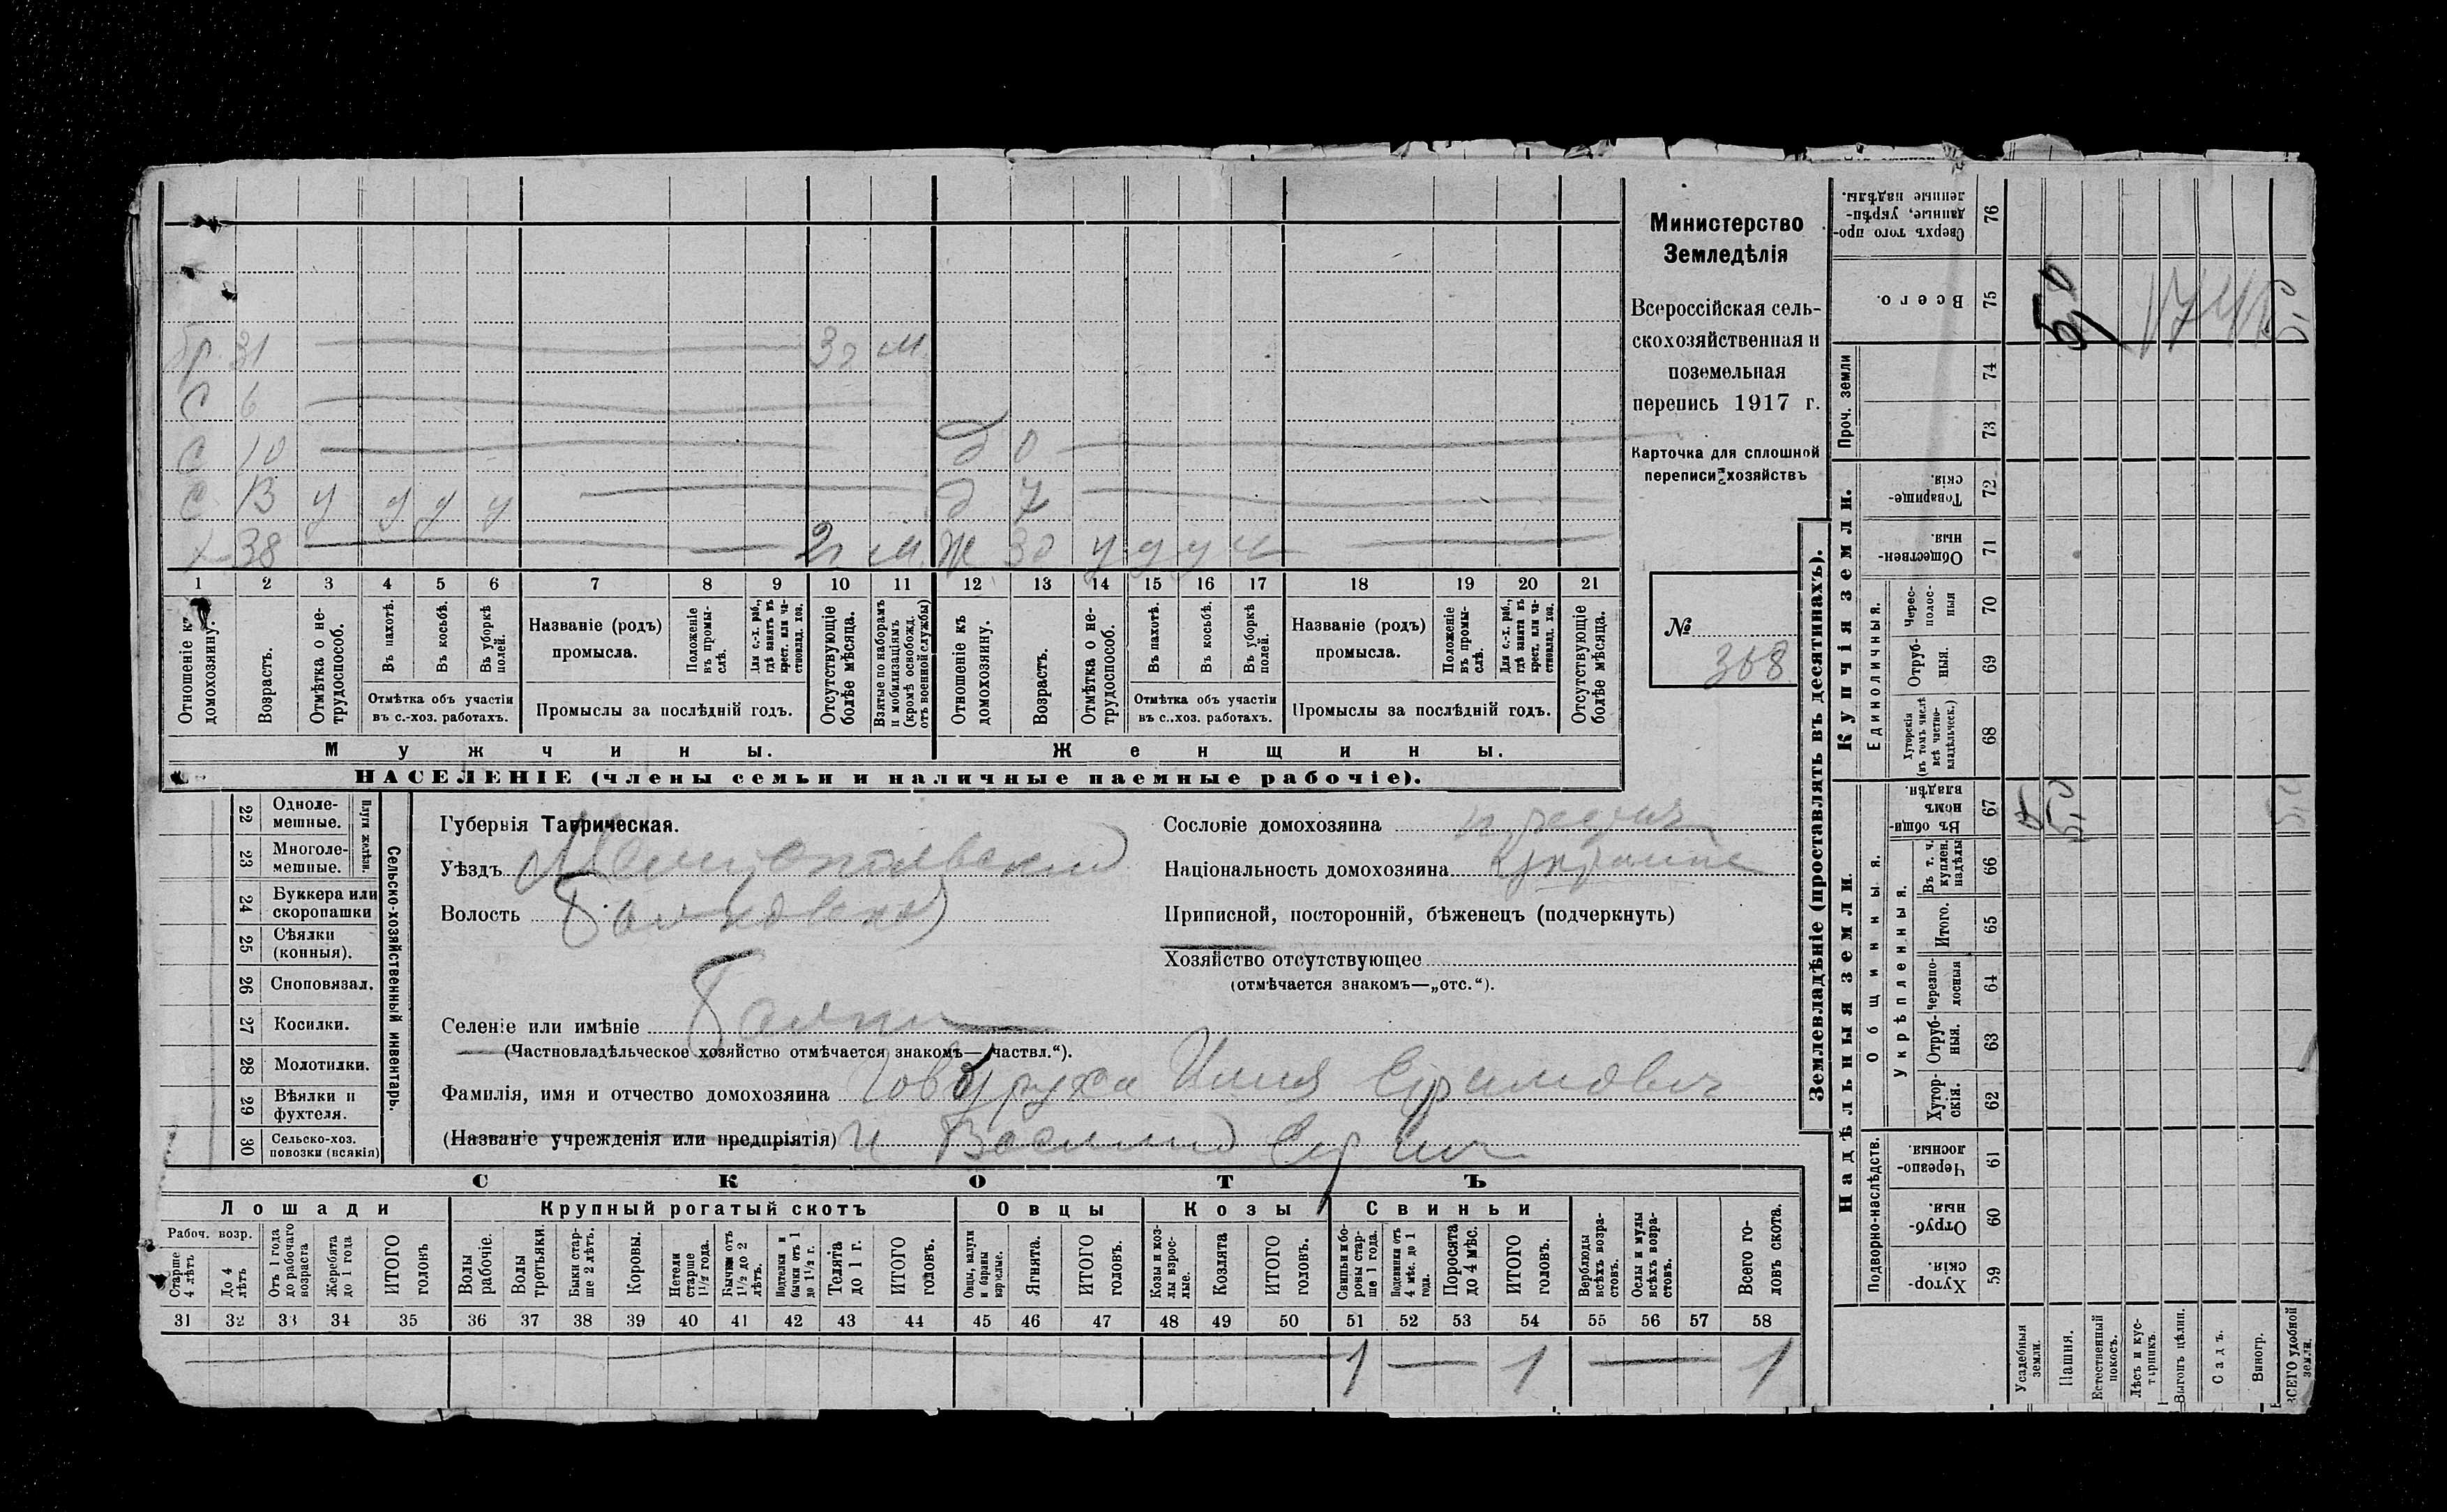 бр. 31 3 г м
С 6
С 10 д 0
С 13 у у у у д 7
х 38 2 г м ж 30 у у у у
1 2 3 4 5 6 7 8 9 10 11 12 13 14 15 16 17 18 19 20 21
Отношеніе къ домохозяину.
Возрастъ.
Отмѣтка о не-трудоспособ.
Въ пахотѣ.
Въ косьбѣ.
Въ уборкѣ полей.
Отмѣтка объ участіи въ с.-хоз. работахъ.
Названіе (родъ) промысла.
Положеніе въ промы-слѣ.
Для с.-х. раб., гдѣ занятъ въ крест. или ча-стновлад. хоз.
Промыслы за послѣдній годъ.
Отсутствующіе болѣе мѣсяца.
Взятые по наборамъ и мобилизаціямъ (кромѣ освобожд. отъ военной службы)
Отношеніе къ домохозяину.
Возрастъ.
Отмѣтка о не-трудоспособ.
Въ пахотѣ.
Въ косьбѣ.
Въ уборкѣ полей.
Отмѣтка объ участіи въ с..хоз. работахъ.
Названіе (родъ) промысла.
Положеніе въ промы-слѣ.
Для с.-х. раб., гдѣ занята въ крест. или ча-стновлад. хоз.
Промыслы за послѣдній годъ.
Отсутствующіе болѣе мѣсяца.
Мужчины. Женщины.
НАСЕЛЕНІЕ (члены семьи и наличные наемные рабочіе).
Министерство
Земледѣлія
Всероссійская сель-
скохозяйственная и
поземельная
перепись 1917 г.
Карточка для сплошной
переписи хозяйствъ
№
368
Сельско-хозяйственный инвентарь.
Плуги желѣзн.
22 Одноле-мешные.
23 Многоле-мешные.
24 Буккера или скоропашки
25 Сѣялки (конныя).
26 Сноповязал.
27 Косилки.
28 Молотилки.
29 Вѣялки и фухтеля.
30 Сельско-хоз. повозки (всякія)
Губернія Таврическая.
Уѣздъ Мелитопольскій
Волость Балковская
Селеніе или имѣніе Балки
(Частновладѣльческое хозяйство отмѣчается знакомъ—„частвл.“).
Фамилія, имя и отчество домохозяина Говоруха Илия Ефимович
(Названіе учрежденія или предпріятія) и Василий Еф
Сословіе домохозяина
Національность домохозяина Украине
Приписной, посторонній, бѣженецъ (подчеркнуть)
Хозяйство отсутствующее
(отмѣчается знакомъ—„отс.“).
СКОТЪ
Лошади Крупный рогатый скотъ Овцы Козы Свиньи
Рабоч. возр.
Старше 4 лѣтъ
До 4 лѣтъ
Отъ 1 года до рабочаго возраста
Жеребята до 1 года
ИТОГО головъ
Волы рабочіе.
Волы третьяки.
Быки стар-ше 2 лѣтъ.
Коровы.
Нетели старше 1½ года.
Бычки отъ 1½ до 2 лѣтъ.
Подтелки и бычки отъ 1 до 1½ г.
Телята до 1 г.
ИТОГО головъ.
Овцы, валухи и бараны взрослые.
Ягнята.
ИТОГО головъ.
Козы и коз-лы взрос-лые.
Козлята
ИТОГО головъ.
Свиньи и бо-ровы стар-ше 1 года.
Подсвинки отъ 4 мѣс. до 1 года.
Поросята до 4 мѣс.
ИТОГО головъ.
Верблюды всѣхъ возра-стовъ.
Ослы и мулы всѣхъ возра-стовъ.
Всего го-ловъ скота.
31 32 33 34 35 36 37 38 39 40 41 42 43 44 45 46 47 48 49 50 51 52 53 54 55 56 57 58
1 1 1
Землевладѣніе (проставлять въ десятинахъ).
Надѣльныя земли.
Купчія земли.
Проч. земли
Подворно-наслѣдств.
Общинныя.
Укрѣпленныя.
Единоличныя.
Сверхъ того про-данные, укрѣп-ленные надѣлы. 76
Всего. 75 5,0
74
73
Товарище-скія. 72
Обществен-ныя. 71
Черес-полос-ныя 70
Отруб-ныя. 69
Хуторскія (въ томъ числѣ всѣ частно-владѣльческ.) 68
Въ общи-номъ владѣн. 67 5,0
Въ т. ч. куплен. надѣлы 66
Итого. 65
Черезпо-лосныя 64
Отруб-ныя. 63
Хутор-скія. 62
Черезпо-лосныя. 61
Отруб-ныя. 60
Хутор-скія. 59
Усадебныя земли.
Пашня.
Естественный покосъ.
Лѣсъ и кус-тарникъ.
Выгонъ цѣлин.
Садъ.
Виногр.
ВСЕГО удобной земли.